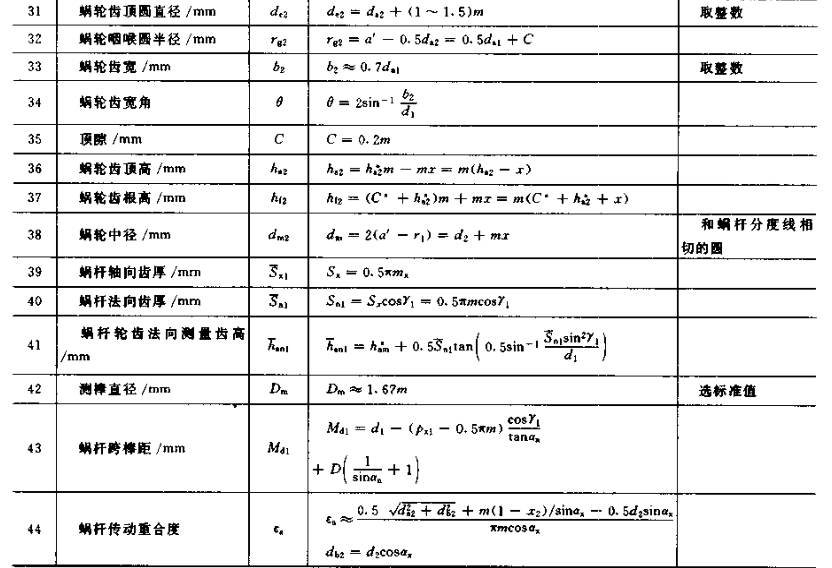 31 蜗轮齿顶圆直径 /mm dₑ₂ dₑ₂ = dₐ₂ + (1 ~ 1.5)m 取整数
32 蜗轮咽喉圆半径 /mm r_g2 r_g2 = a′ − 0.5dₐ₂ = 0.5dₐ₁ + C
33 蜗轮齿宽 /mm b₂ b₂ ≈ 0.7dₐ₁ 取整数
34 蜗轮齿宽角 θ θ = 2sin⁻¹ b₂/d₁
35 顶隙 /mm C C = 0.2m
36 蜗轮齿顶高 /mm hₐ₂ hₐ₂ = h*ₐ₂m − mx = m(hₐ₂ − x)
37 蜗轮齿根高 /mm h_f2 h_f2 = (C* + h*ₐ₂)m + mx = m(C* + h*ₐ₂ + x)
38 蜗轮中径 /mm d_m2 d_m = 2(a′ − r₁) = d₂ + mx 和蜗杆分度线相
切的圆
39 蜗杆轴向齿厚 /mm S̄ₓ₁ Sₓ = 0.5πmₓ
40 蜗杆法向齿厚 /mm S̄ₙ₁ Sₙ₁ = Sₓcosγ₁ = 0.5πmcosγ₁
41 蜗杆轮齿法向测量齿高
/mm h̄ₐₙ₁ h̄ₐₙ₁ = h*ₐₘ + 0.5S̄ₙ₁tan(0.5sin⁻¹ S̄ₙ₁sin²γ₁/d₁)
42 测棒直径 /mm Dₘ Dₘ ≈ 1.67m 选标准值
43 蜗杆跨棒距 /mm M_d1 M_d1 = d₁ − (pₓ₁ − 0.5πm) cosγ₁/tanαₙ
+ D(1/sinαₙ + 1)
44 蜗杆传动重合度 εₐ εₐ ≈ 0.5 √(d²ₐ₂ + d²_b2) + m(1 − x₂)/sinαₓ − 0.5d₂sinαₓ / πmcosαₓ
d_b2 = d₂cosαₓ